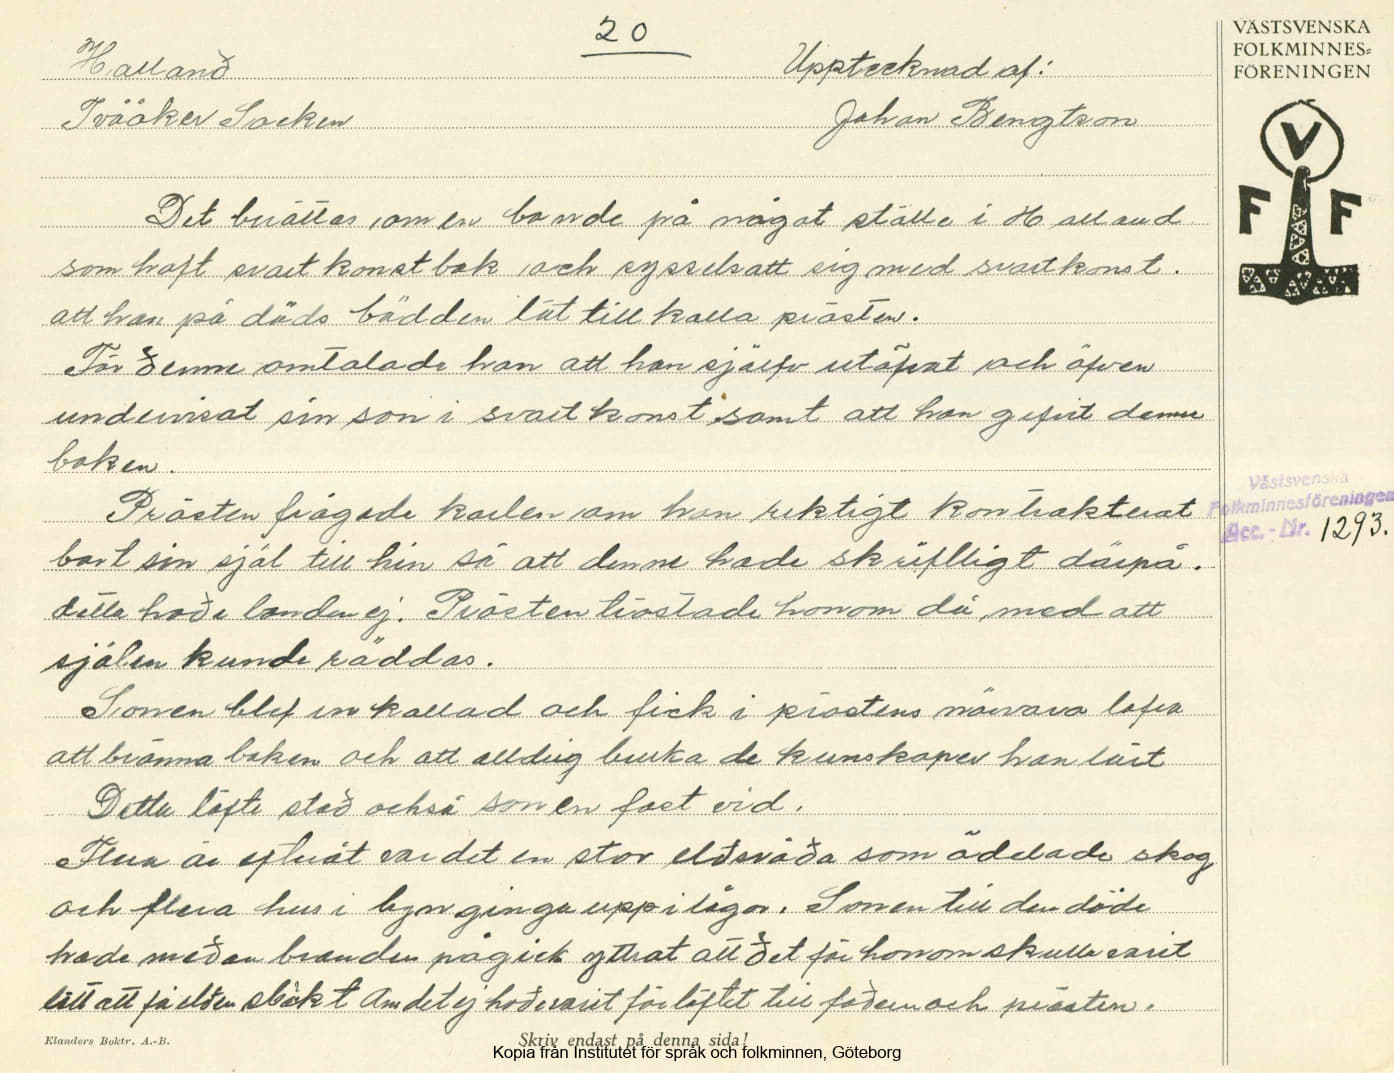 20
Halland
Upptecknad af:
Tvååker Socken
Johan Bengtson
Det berättas om en bonde på något ställe i Halland
som haft svartkonstbok och sysselsatt sig med svartkonst.
att han på döds bädden lät till kalla prästen.
För denne omtalade han att han själfv utöfvat och öfven
undervisat sin son i svartkonst samt att han gifvit denne
boken.
Prästen frågade karlen om han riktigt kontrakterat
bort sin själ till hin så att denne hade skriftligt därpå.
detta hade bonden ej. Prästen tröstade honom då med att
själen kunde räddas.
Sonen blef in kallad och fick i prästens närvara lofva
att bränna boken och att alldrig bruka de kunskaper han lärt
Detta löfte stod också sonen fast vid.
Flera år efteråt var det en stor eldsvåda som ödelade skog
och flera hus i byn gingo upp i lågor. Sonen till den döde
hade medan branden pågick yttrat att det för honom skulle varit
lätt att få elden släckt Om det ej hade varit för löftet till fadern och prästen.
Elanders Boktr. A.-B.
Skriv endast på denna sida!
Kopia från Institutet för språk och folkminnen, Göteborg
VÄSTSVENSKA
FOLKMINNES-
FÖRENINGEN
V
F F
Västsvenska
Folkminnesföreningen
Acc.-Nr. 1293.